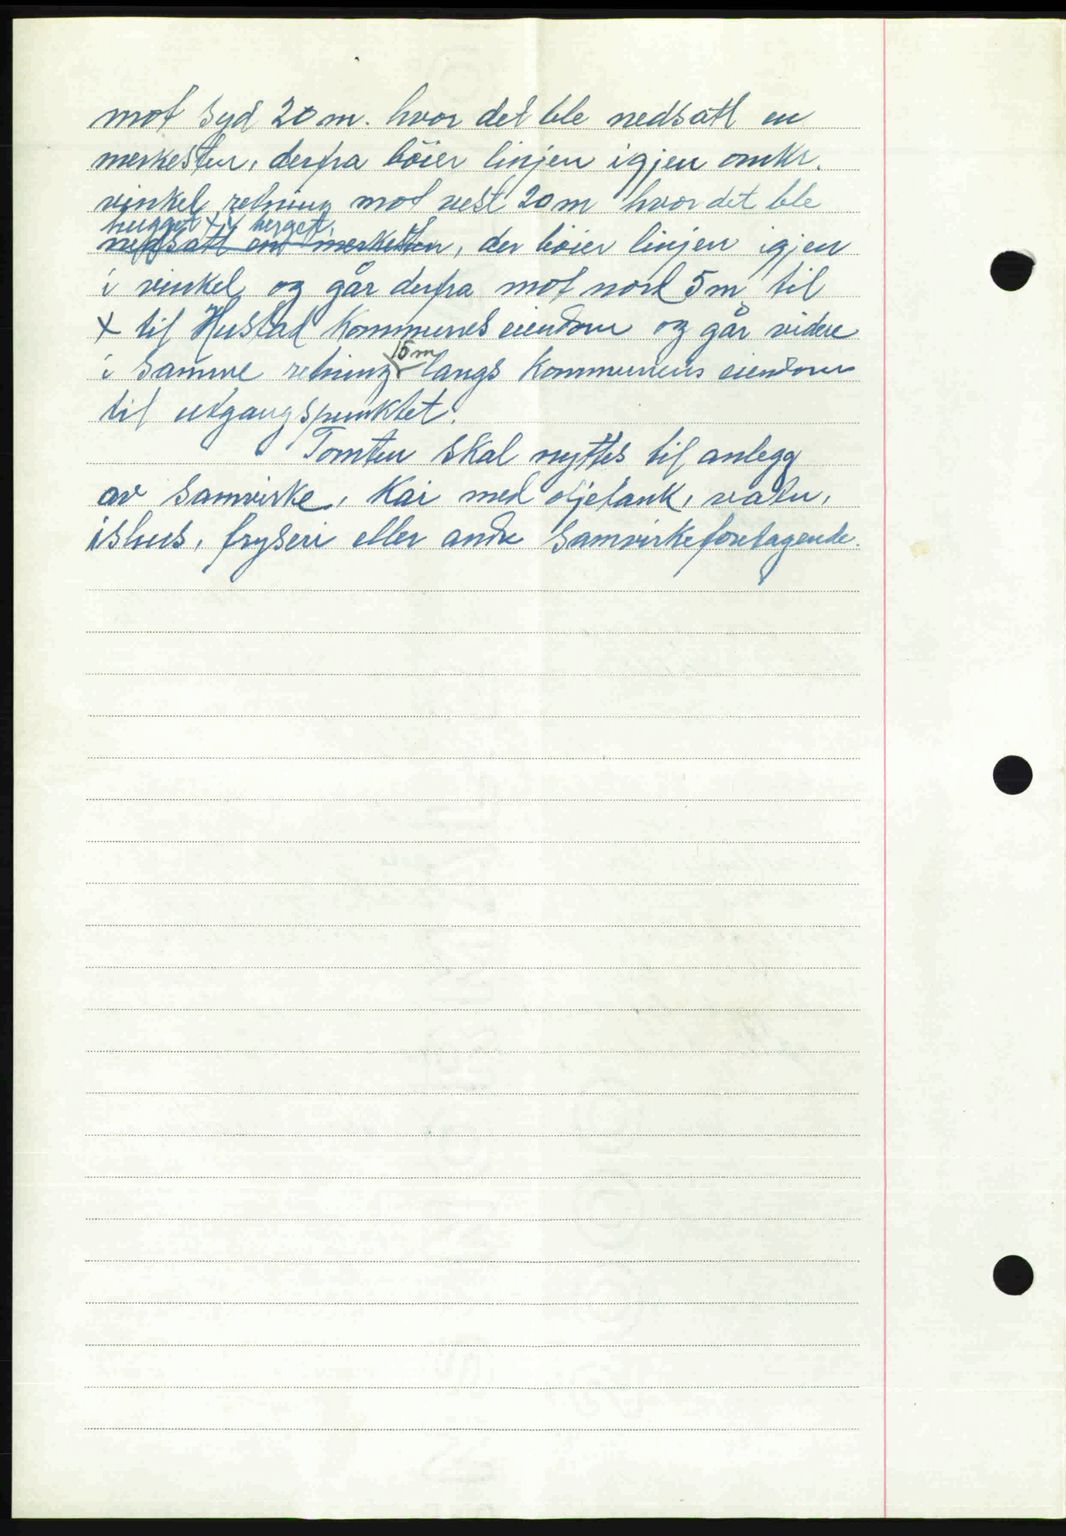 mot syd 20 m. hvor det ble nedsatt en
merkesten, derfra böier linjen igjen omkr.
vinkel retning mot vest 20 m hvor det ble
hugget x i berget,
nedsatt en merkesten, der böier linjen igjen
i vinkel og går derfra mot nord 5 m til
x til Hustad Kommunes eiendom og går videre
15 m
i samme retning langs Kommunens eiendom
til utgangspunktet.
Tomten skal nyttes til anlegg
av samvirke, Kai med oljetank, vatn,
ishus, fryseri eller andre samvirkeforetagende.